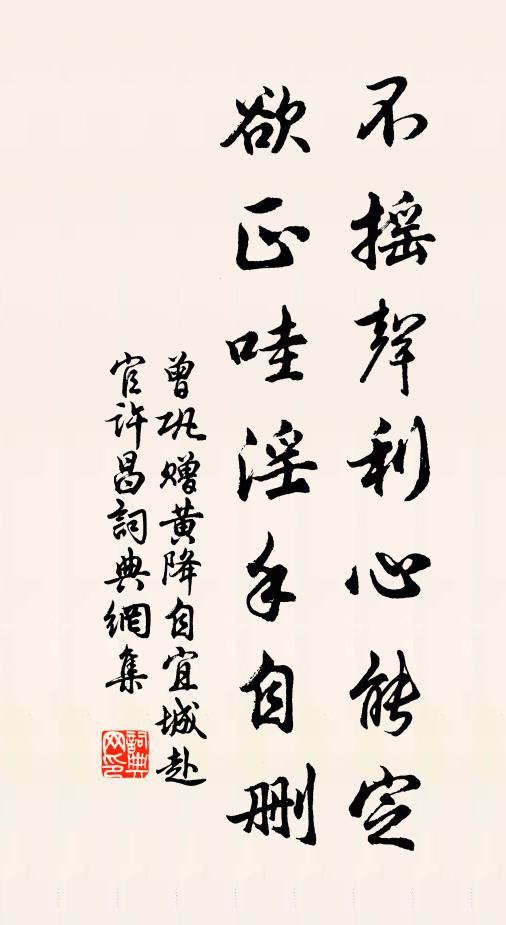 不摇聲利心能定
欲正哇淫手自删
曾巩赠黄降自宜城赴
官许昌詞典網集
詞典网印